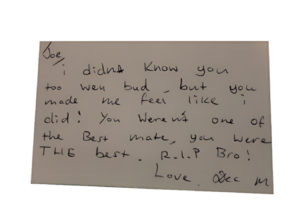 Joe,
i didnt know you
too well bud, but you
made me feel like i
did! You weren't one of
the Best mate, you were
THE best. R.I.P Bro!
Love Dec M